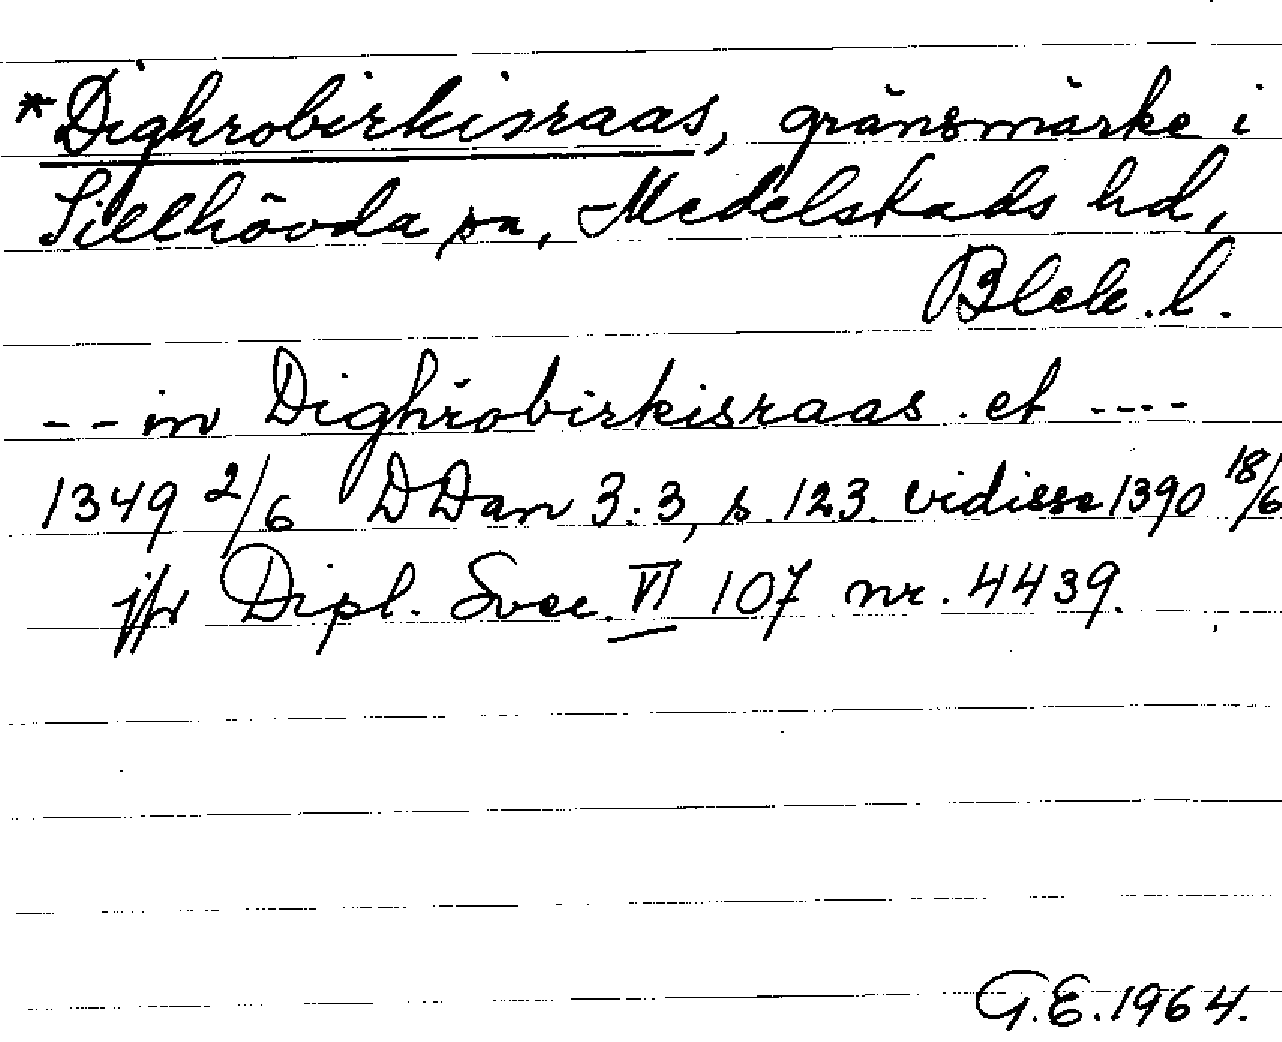 *Dighrobirkisraas, gränsmärke i
Sillhövda sn, Medelstads hd,
Blek. l.
-- in Dighrobirkisraas et ----
1349 2/6 DDan 3.3, s. 123. vidisse 1390 18/6
jfr Dipl. Svec. VI 107 nr. 4439.
G.E. 1964.